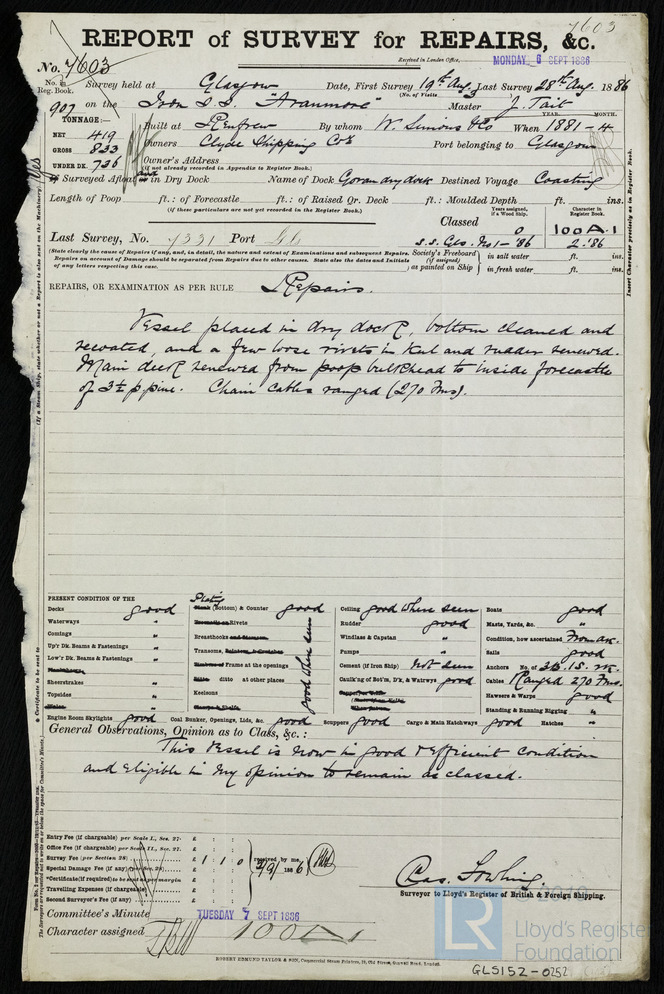 7603
REPORT of SURVEY for REPAIRS, &c.
No. 7603
Received in London Office, MONDAY 6 SEPT 1886
No. in Reg. Book. Survey held at Glasgow Date, First Survey 19th Aug. Last Survey 28th Aug. 1886
(No. of Visits 3)
907 on the Iron S.S. "Aranmore" Master J. Tait
TONNAGE:
YEAR. MONTH.
NET 419 Built at Renfrew By whom W. Simons & Co When 1881-4
GROSS 833 Owners Clyde Shipping Coy Port belonging to Glasgow
UNDER DK. 726 Owner's Address
(if not already recorded in Appendix to Register Book.)
If Surveyed Afloat and in Dry Dock Name of Dock Govan dry dock Destined Voyage Coasting
Length of Poop ft.: of Forecastle ft.: of Raised Qr. Deck ft.: Moulded Depth ft. ins.
(if these particulars are not yet recorded in the Register Book.)
Years assigned, if a Wood Ship. Character in Register Book.
Classed 0 100A.1
Last Survey, No. 7331 Port Gls s.s. Gls. No 1-'86 2.'86
(State clearly the cause of Repairs if any, and, in detail, the nature and extent of Examinations and subsequent Repairs.
Repairs on account of Damage should be separated from Repairs due to other causes. State also the dates and Initials
of any letters respecting this case.
Society's Freeboard (if assigned) as painted on Ship
in salt water ft. ins.
in fresh water ft. ins.
REPAIRS, OR EXAMINATION AS PER RULE Repairs.
Vessel placed in dry dock, bottom cleaned and
recoated, and a few loose rivets in keel and rudder renewed.
Main deck renewed from poop bulkhead to inside forecastle
of 3½ p. pine. Chain cables ranged (270 fms).
PRESENT CONDITION OF THE
Decks good
Waterways "
Comings "
Up'r Dk. Beams & Fastenings "
Low'r Dk. Beams & Fastenings "
Sheerstrakes "
Topsides "
Plating (Bottom) & Counter good
Rivets
Breasthooks
Transoms,
Frames at the openings
ditto at other places
Keelsons
good where seen
Ceiling good where seen
Rudder good
Windlass & Capstan "
Pumps "
Cement (if Iron Ship) not seen
Caulking of Bot'm, D'k, & Watrwys good
Boats good
Masts, Yards, &c. "
Condition, how ascertained From dk.
Sails good
Anchors No. of 3B. 1S. 1K.
Cables Ranged 270 fms.
Hawsers & Warps good
Standing & Running Rigging "
Engine Room Skylights good Coal Bunker, Openings, Lids, &c. good Scuppers good Cargo & Main Hatchways good Hatches "
General Observations, Opinion as to Class, &c.:
This vessel is now in good & efficient condition
and eligible in my opinion to remain as classed.
Entry Fee (if chargeable) per Scale I., Sec. 27. £ : :
Office Fee (if chargeable) per Scale II., Sec. 27. £ : :
Survey Fee (per Section 28) £ 1 : 1 : 0
received by me, 2/9/1886
Special Damage Fee (if any) (per Sec. 28) £ : :
*Certificate (if required) to be sent as per margin £ : :
Travelling Expenses (if chargeable) £ : :
Second Surveyor's Fee (if any) £ : :
Surveyor to Lloyd's Register of British & Foreign Shipping.
Committee's Minute TUESDAY 7 SEPT 1886
Character assigned 100A1
Lloyd's Register
Foundation
ROBERT EDMUND TAYLOR & SON, Commercial Steam Printers, 19, Old Street, Goswell Road, London.
GLS152-0252